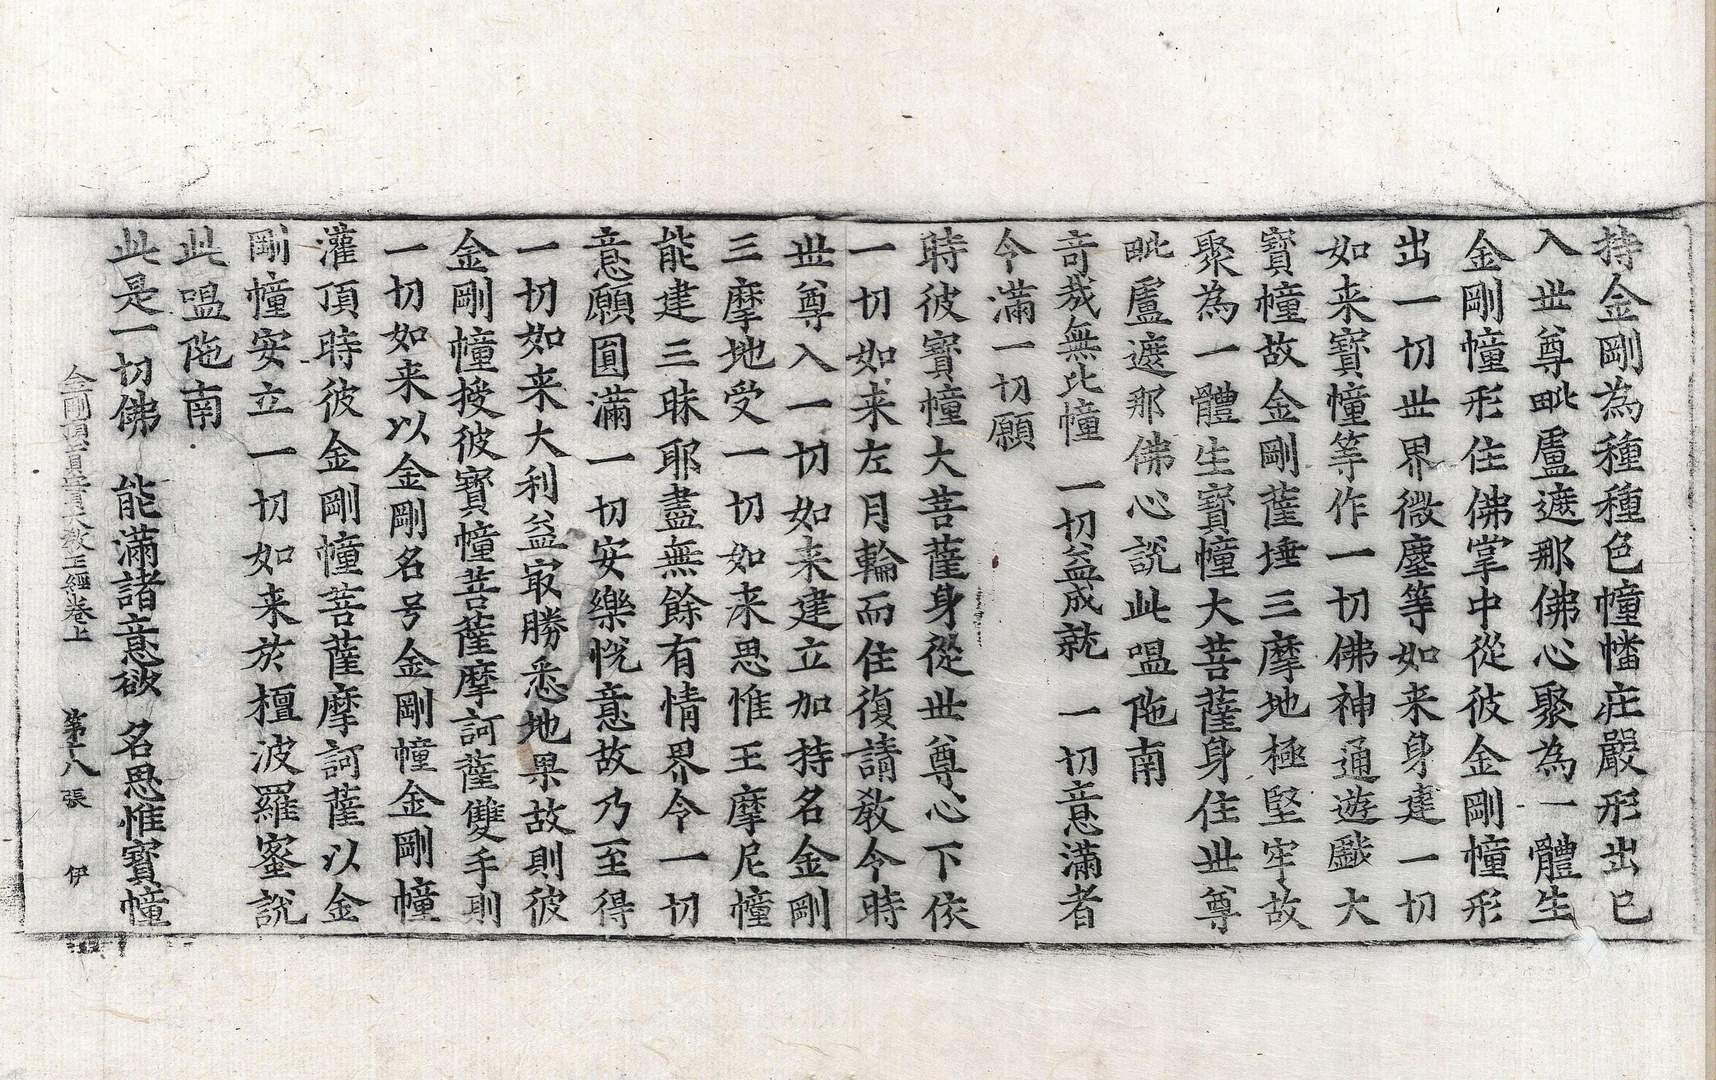 持金剛為種種色幢幡庄嚴形出已
入丗尊毗盧遮那佛心聚為一體生
金剛幢形住佛掌中從彼金剛幢形
出一切丗界微塵等如来身建一切
如来寳幢等作一切佛神通遊戱大
寳幢故金剛薩埵三摩地極堅牢故
聚為一體生寳幢大菩薩身住丗尊
毗盧遮那佛心說此嗢陁南
竒㦲無比幢　一切益成就　一切意滿者
今滿一切願
時彼寳幢大菩薩身從丗尊心下依
一切如来左月輪而住復請教令時
丗尊入一切如来建立加持名金剛
三摩地受一切如来思惟王摩尼幢
能建三昧耶盡無餘有情界令一切
意願圓滿一切安樂恱意故乃至得
一切如来大利益㝡勝悉地果故則彼
金剛幢授彼寳幢菩薩摩訶薩雙手則
一切如来以金剛名号金剛幢金剛幢
灌頂時彼金剛幢菩薩摩訶薩以金
剛幢安立一切如来於檀波羅蜜說
此嗢陁南
此是一切佛　能滿諸意欲　名思惟寳幢
金剛頂。。真實大教王經卷上　第十八張　伊